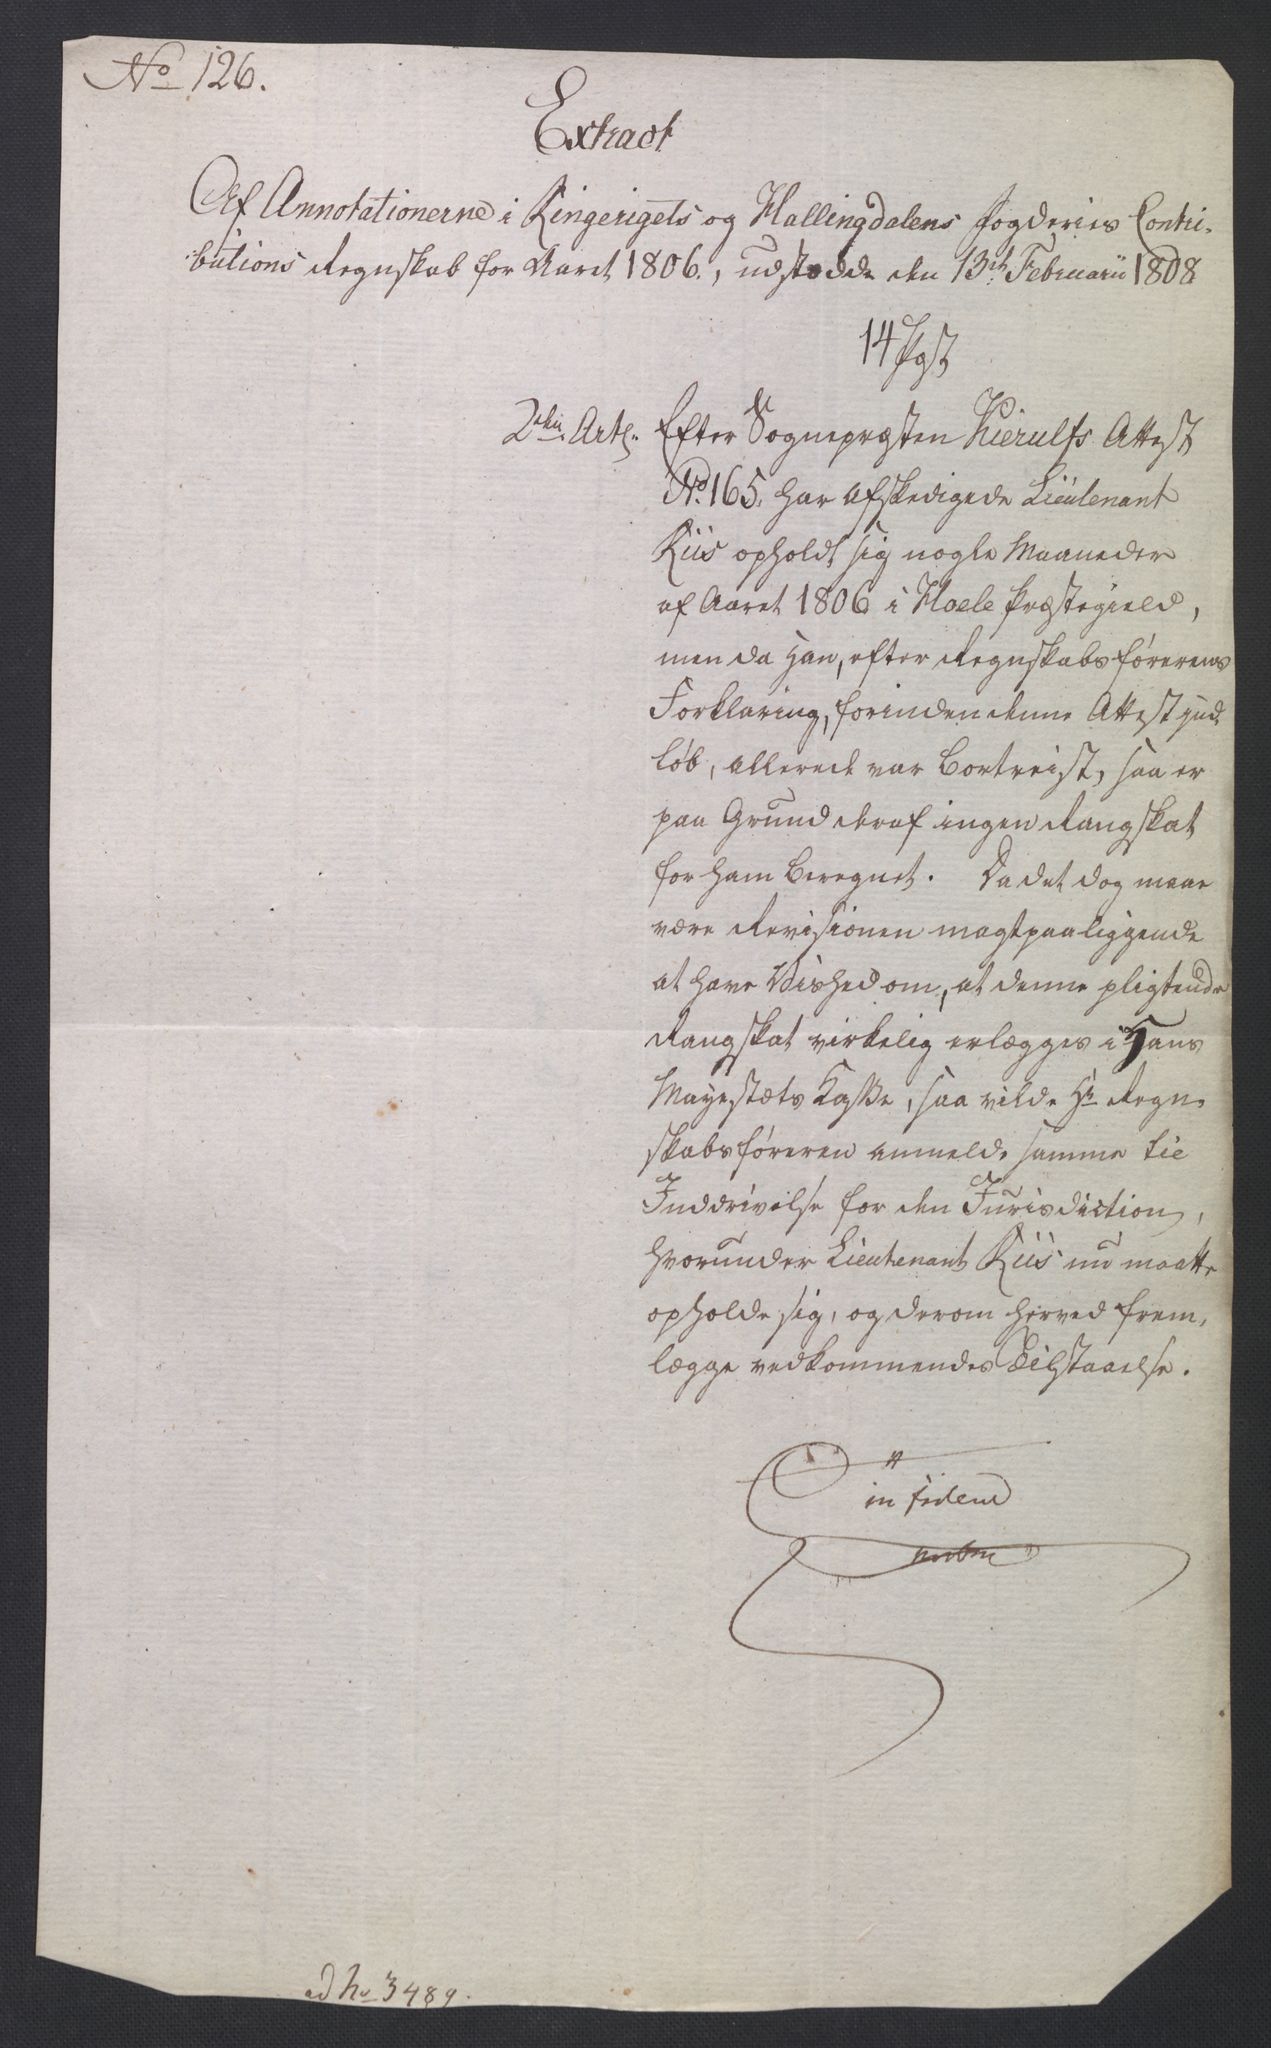 No 126.
Extract
Af Annotationerne i Ringerigets og Hallingdalens Fogderies Contri-
butions Regnskab for Aaret 1806., udstædde den 13de Februarii 1808
14 Pgst
2den Artl. Efter Sognepræsten Kierulfs Attest
No. 165. har afskedigede Lieutenant
Riis opholdt sig nogle Maaneder
af Aaret 1806 i Hoele Præstegield,
men da Han, efter Regnskabsførerens
Forklaring, forinden denne Attest ind
løb, allerede var bortreist, saa er
paa Grund deraf ingen Rangskat
for ham beregnet. Da det dog maae
være Revisionen magtpaaliggende
at have Vished om, at denne pligtende
Rangskat virkelig erlægges i Hans
Mayestæts Kasse, saa vilde Hr Regn-
skabsføreren anmelde samme til
Inddrivelse for den Jurisdiction,
hvorunder Lieutenant Riis nu maatte
opholde sig, og derom herved frem-
lægge vedkommendes Tilstaaelse.
in fidem
ad No 3489.